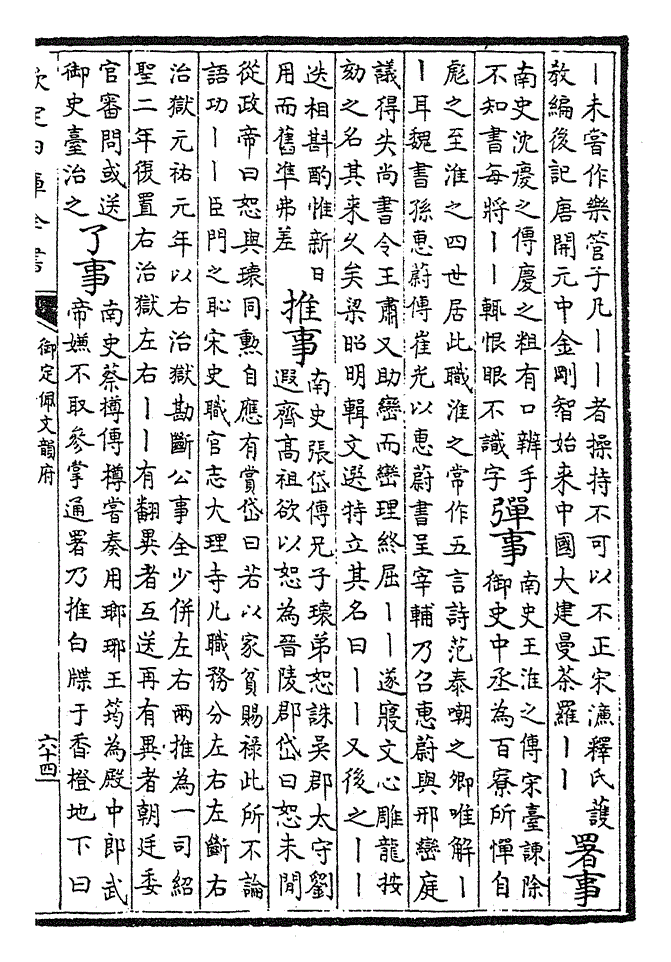 丨未嘗作樂管子凡丨丨者操持不可以不正宋濂釋氏䕶
教編後記唐開元中金剛智始来中國大建曼荼羅丨丨
署事
南史沈慶之傳慶之粗有口辨手
不知書每將丨丨輒恨眼不識字
彈事
南史王淮之傳宋臺諫除
御史中丞為百寮所憚自
彪之至淮之四世居此職淮之常作五言詩范泰嘲之卿唯解丨
丨耳魏書孫惠蔚傳崔光以惠蔚書呈宰輔乃召惠蔚與邢巒庭
議得失尚書令王肅又助巒而巒理終屈丨丨遂寢文心雕龍按
劾之名其来久矣梁昭明輯文選特立其名曰丨丨又後之丨丨
迭相斟酌惟新日
用而舊準弗差
推事
南史張岱傳兄子瓌弟恕誅吳郡太守劉
遐齊髙祖欲以恕為晉陵郡岱曰恕未閒
從政帝曰恕與瓌同勲自應有賞岱曰若以家貧賜禄此所不論
語功丨丨臣門之恥宋史職官志大理寺凡職務分左右左斷右
治獄元祐元年以右治獄勘斷公事全少併左右兩推為一司紹
聖二年復置右治獄左右丨丨有翻異者互送再有異者朝廷委
官審問或送
御史臺治之
了事
南史蔡樽傳樽嘗奏用瑯琊王筠為殿中郎武
帝嫌不取參掌通署乃推白牒于香橙地下曰
欽定四庫全書
御定佩文韻府
六十四